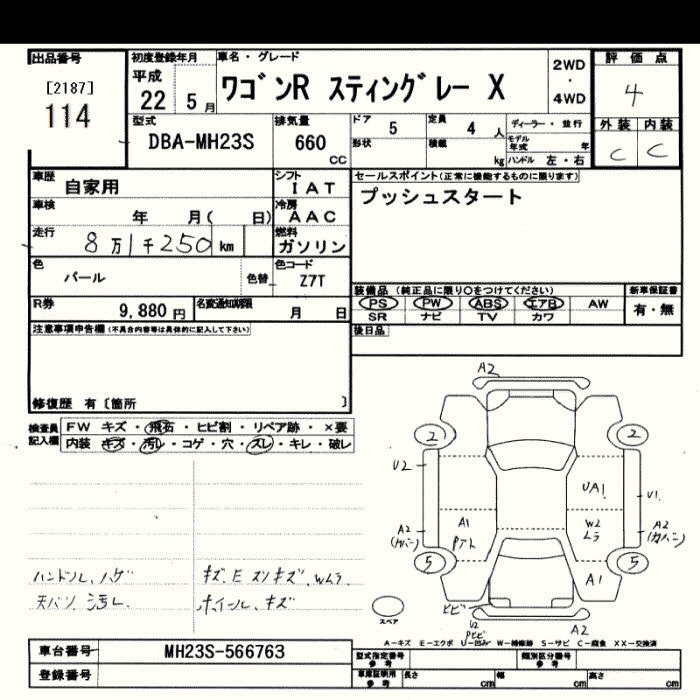 出品番号 初度登録年月 車名・グレード 2WD・4WD 評価点
[2187] 平成 ワゴンR スティングレー X 4
114 22 5月 外装 内装
型式 排気量 ドア 5 定員 4人 ディーラー・並行 C C
DBA-MH23S 660 CC 形状 積載 kg モデル年式 年
ハンドル 左・右
車歴 自家用 シフト IAT セールスポイント(正常に機能するものに限ります)
車検 年 月( 日) 冷房 AAC プッシュスタート
走行 8万1千250km 燃料 ガソリン
色 パール 色替 色コード Z7T
装備品 (純正品に限り○をつけてください) 新車保証書
PS PW ABS エアB AW 有・無
SR ナビ TV カワ
R券 9,880円 名変通知期限 月 日
後日品
注意事項申告欄(不具合内容等は具体的に記入して下さい)
修復歴 有〔箇所 〕
検査員記入欄 FW キズ・飛石・ヒビ割・リペア跡・×要
内装 キズ・汚レ・コゲ・穴・スレ・キレ・破レ
A2
2 2
U2 UA1 U1
A1 W2
A2 (カバー) ムラ A2 (カバー)
5 5
A1
ハンドル、ハゲ キズ、E スリキズ、Wムラ
天バリ、汚レ ホイール、キズ
スペア ヒビ U2 A2
A-キズ E-エクボ U-凹み W-補修跡 S-サビ C-腐食 XX-交換済
車台番号 MH23S-566763 型式指定番号 参考 類別区分番号 参考
登録番号 車庫証明用 参考 長さ cm 幅 cm 高さ cm